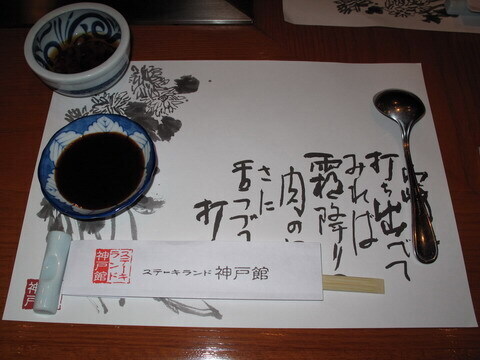 打ち出べて
みれば
霜降り
肉の
さに
舌つづ
打
ステーキランド
神戸館
ステーキランド 神戸館
神戸館